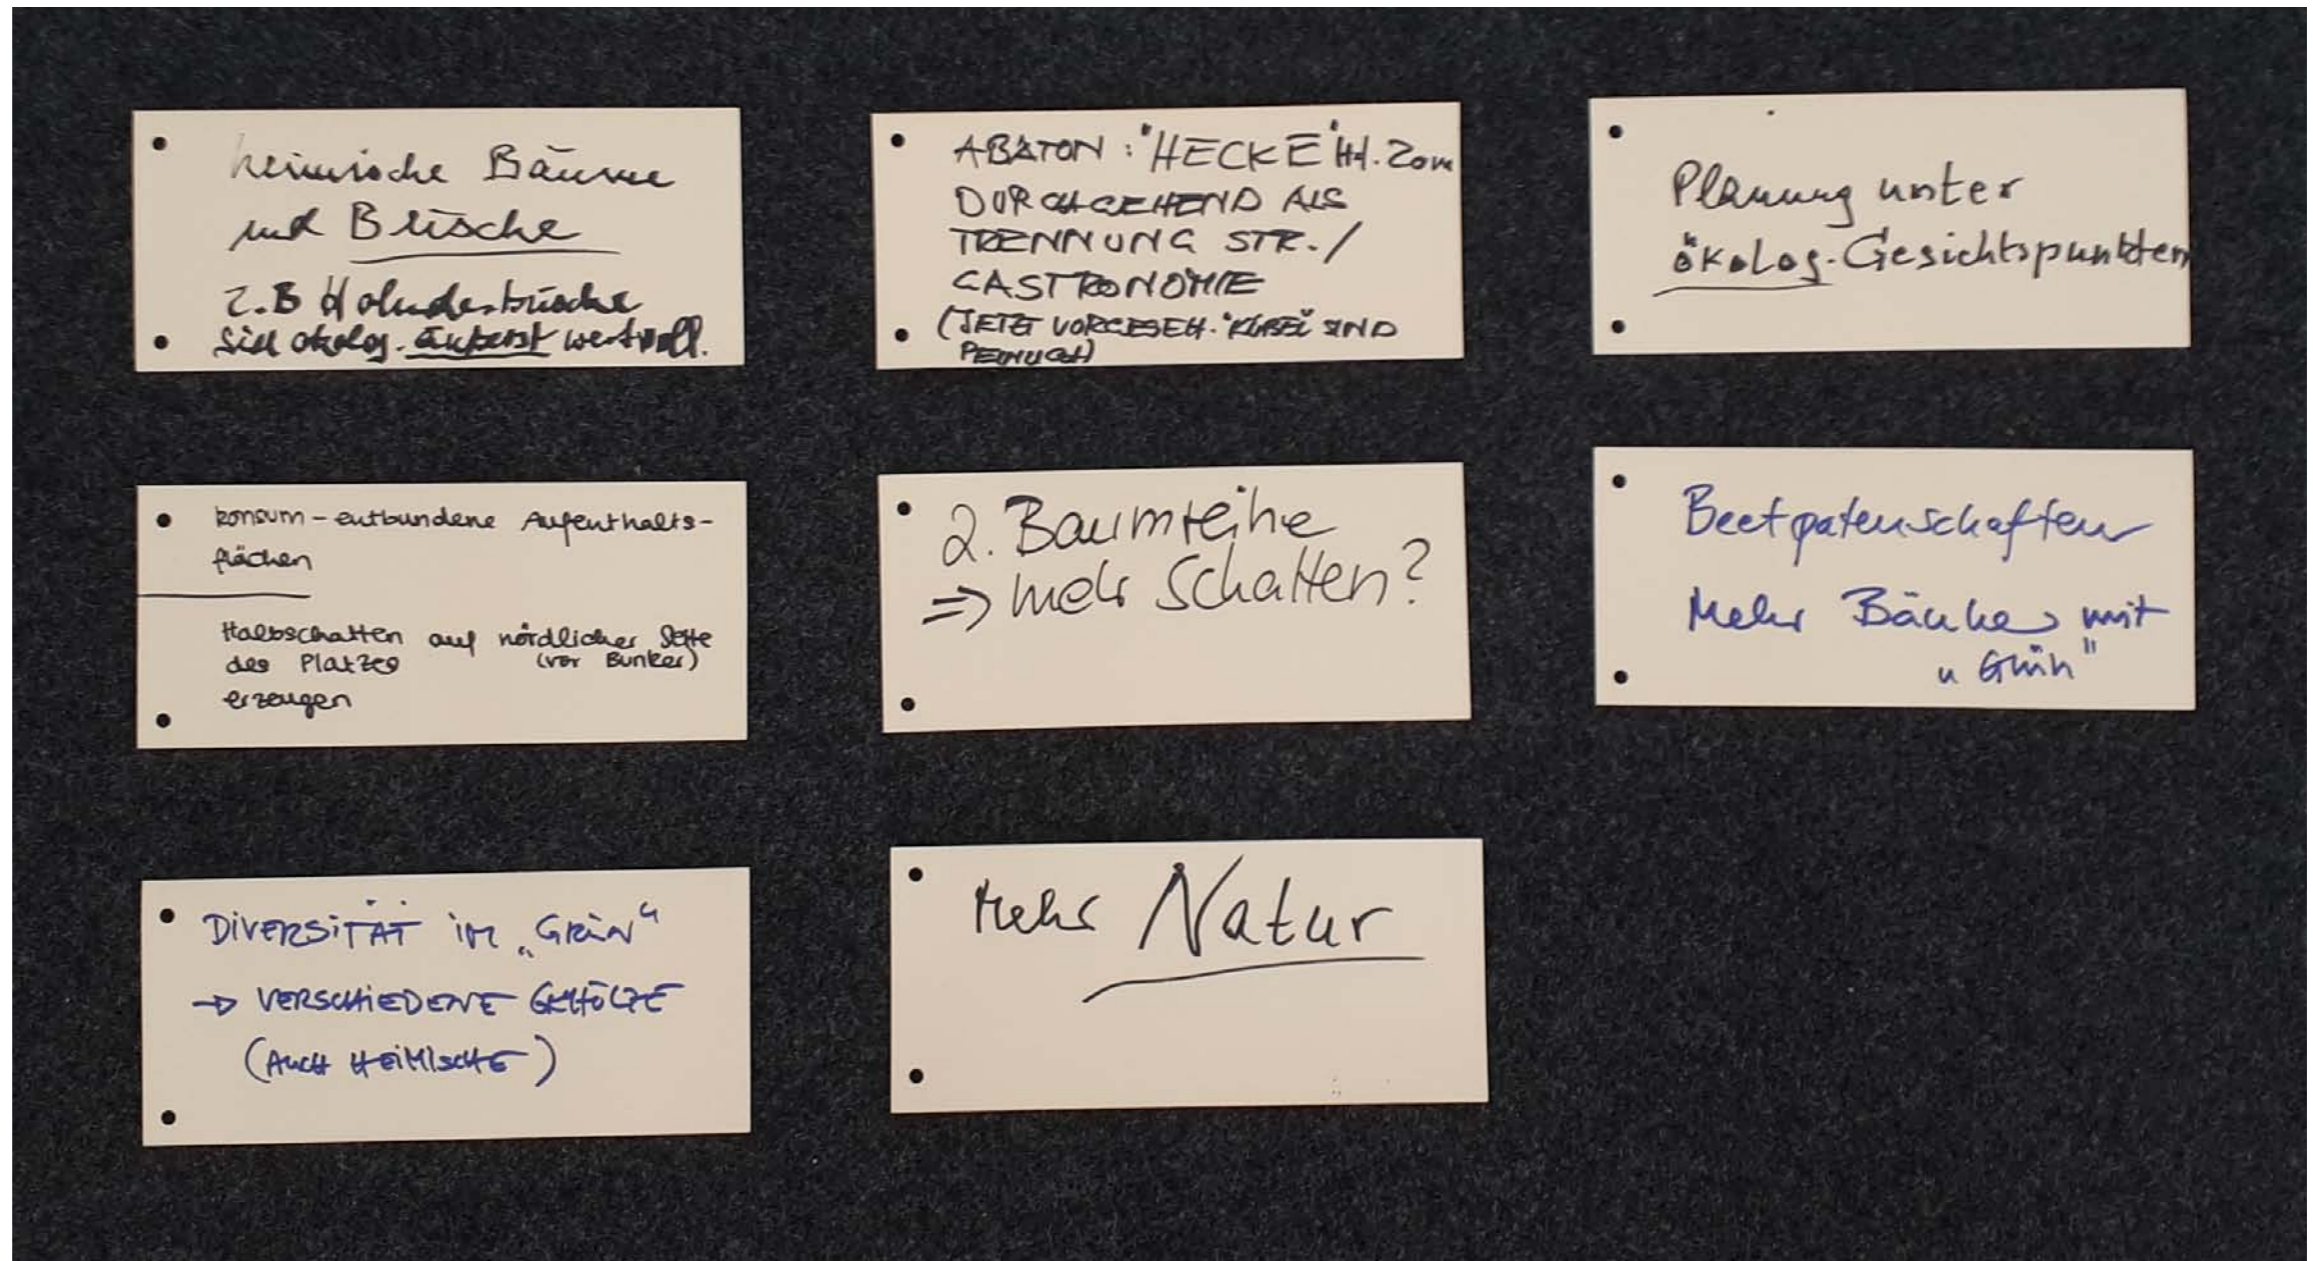 heimische Bäume
und Büsche
z.B Holunderbüsche
sind ökolog. äußerst wertvoll.
ABATON: "HECKE"
DURCHGEHEND ALS
TRENNUNG STR./
GASTRONOMIE
(JETZT VORGESEH. "KÜBEL" SIND
PEINLICH)
Planung unter
ökolog. Gesichtspunkten
konsum-entbundene Aufenthalts-
flächen
Halbschatten auf nördlicher Seite
des Platzes (vor Bunker)
erzeugen
2. Baumreihe
⇒ mehr Schatten?
Beetpatenschaften
Mehr Bänke mit
"Grün"
DIVERSITÄT IM „GRÜN"
→ VERSCHIEDENE GEHÖLZE
(AUCH HEIMISCHE)
Mehr Natur